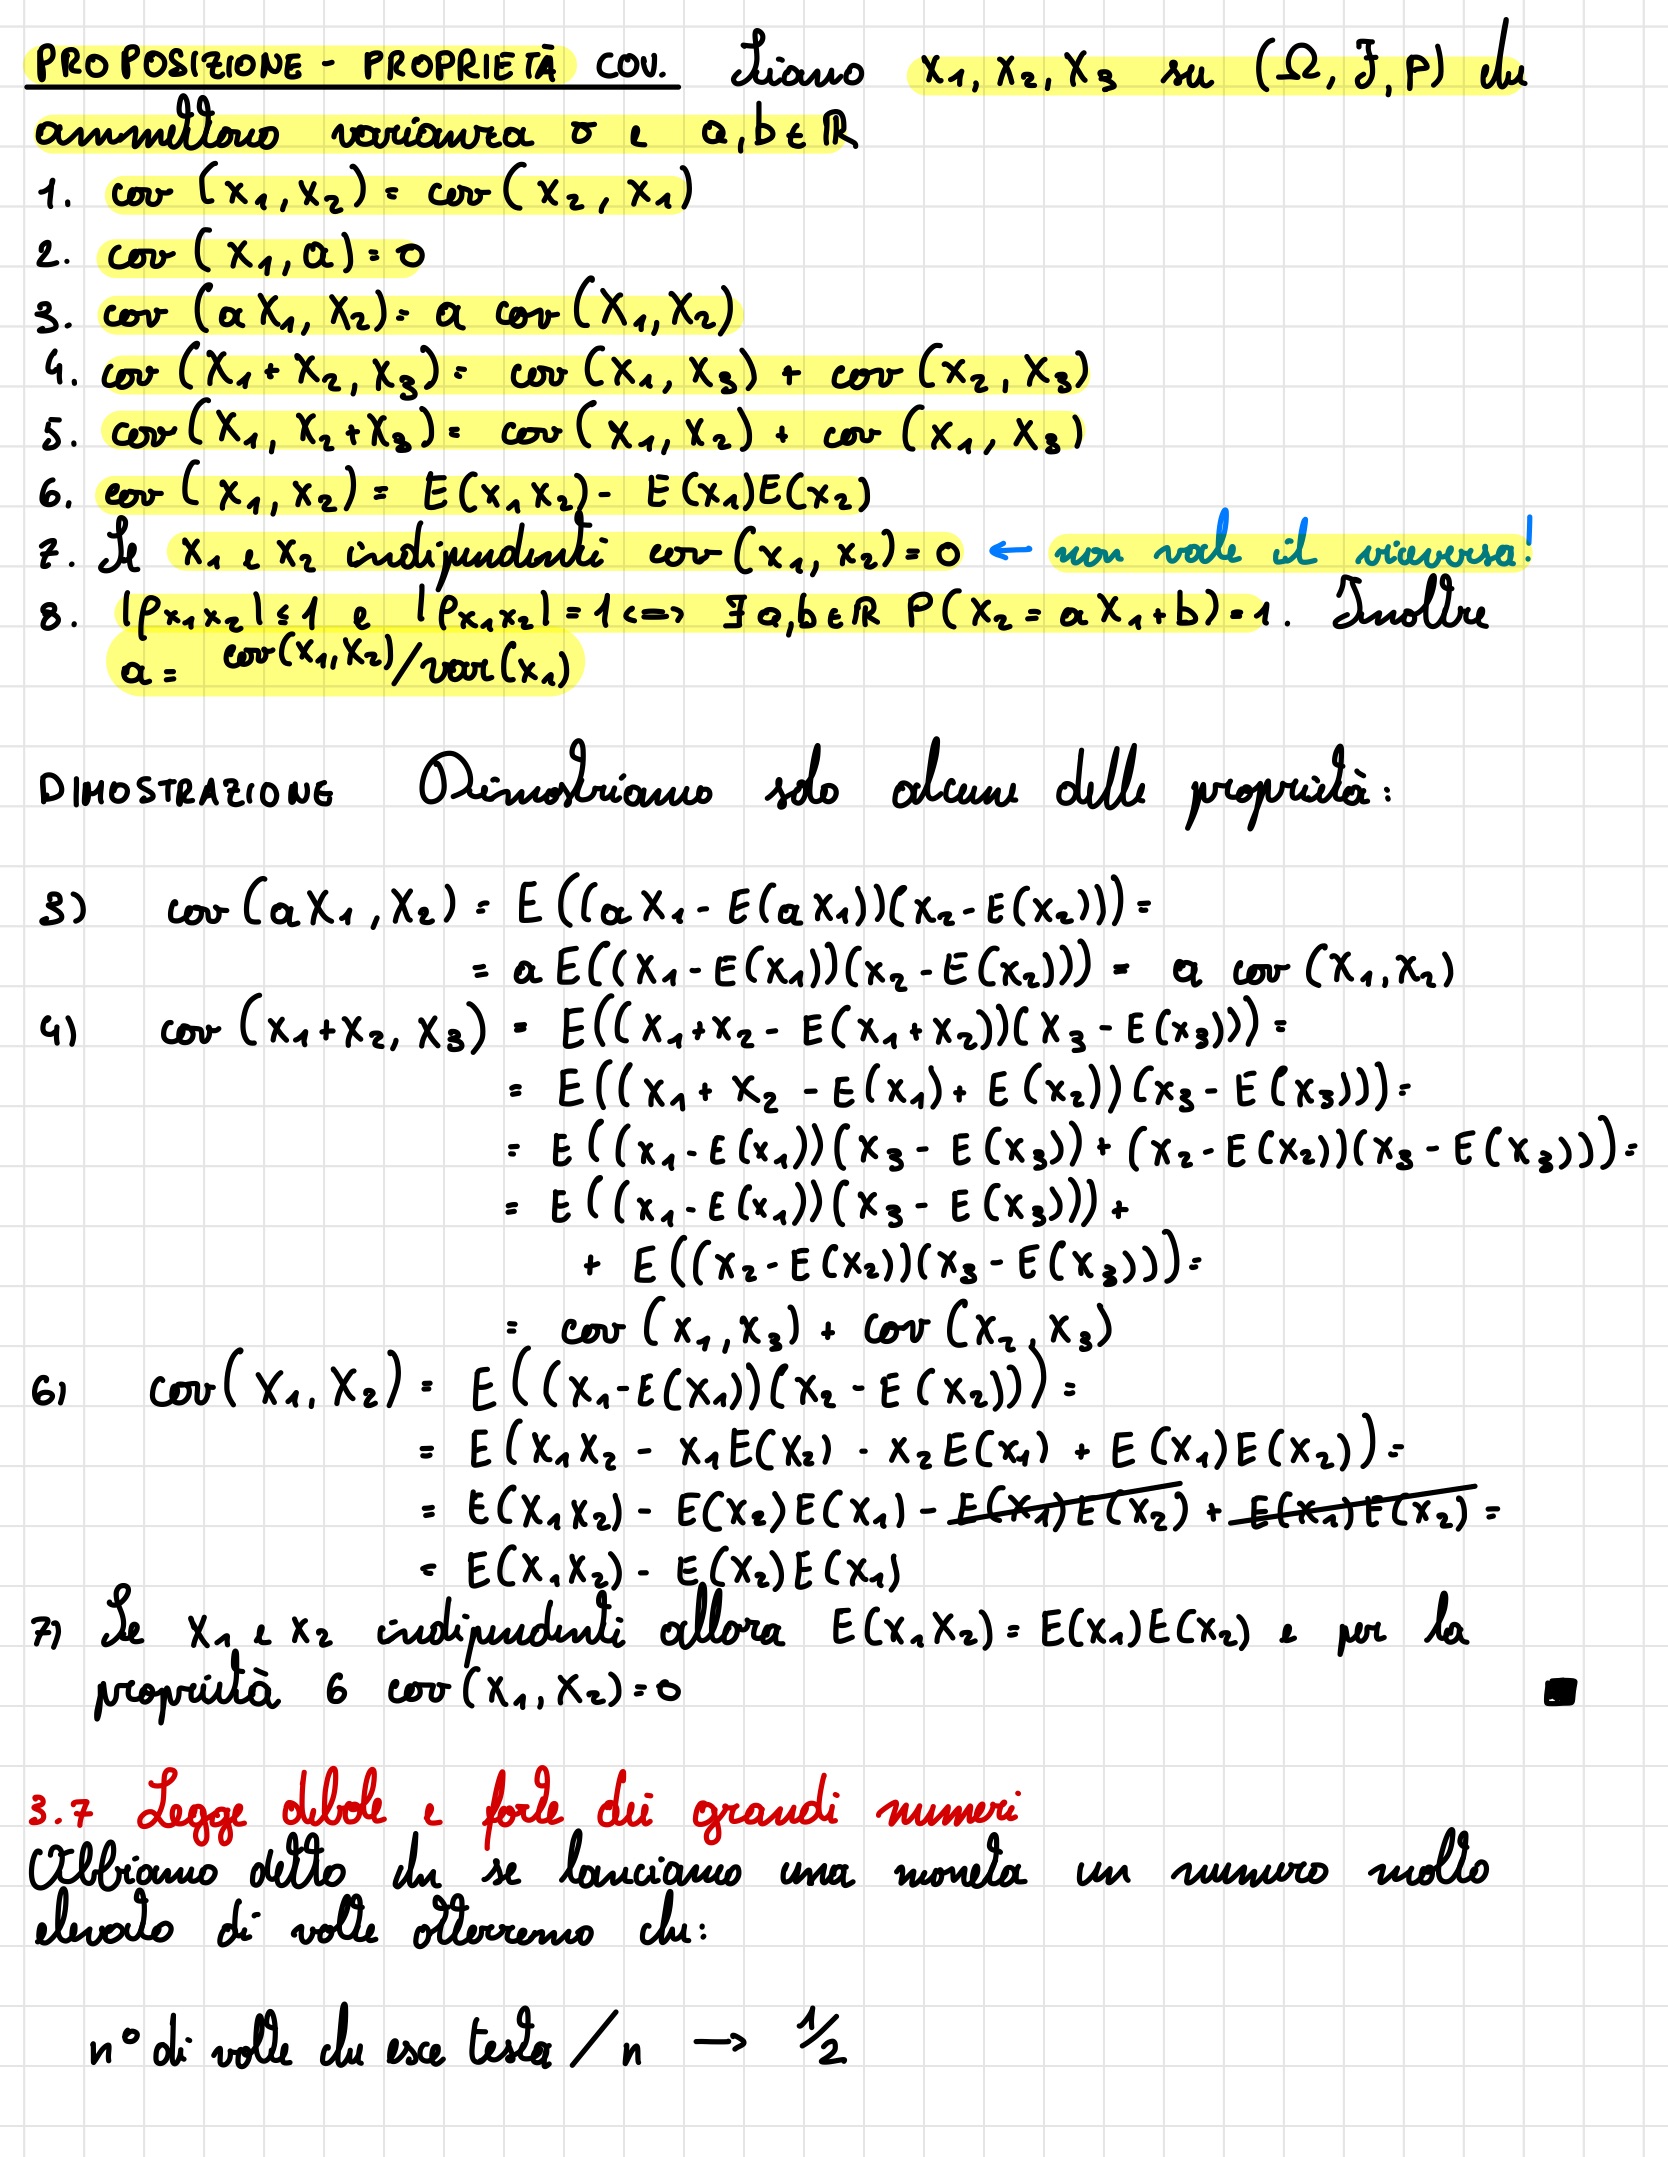 PROPOSIZIONE - PROPRIETÀ COV. Siano X₁, X₂, X₃ su (Ω, F, P) che
ammettono varianza σ e a,b ∈ ℝ
1. cov (X₁, X₂) = cov (X₂, X₁)
2. cov (X₁, a) = 0
3. cov (a X₁, X₂) = a cov (X₁, X₂)
4. cov (X₁ + X₂, X₃) = cov (X₁, X₃) + cov (X₂, X₃)
5. cov (X₁, X₂+X₃) = cov (X₁, X₂) + cov (X₁, X₃)
6. cov (X₁, X₂) = E(X₁X₂) - E(X₁)E(X₂)
7. Se X₁ e X₂ indipendenti cov (X₁, X₂) = 0 ← non vale il viceversa!
8. |ρx₁x₂| ≤ 1 e |ρx₁x₂| = 1 <=> ∃ a,b ∈ ℝ P(X₂ = a X₁ + b) = 1. Inoltre
a = cov(X₁, X₂)/var(X₁)
DIMOSTRAZIONE Dimostriamo solo alcune delle proprietà:
3) cov (a X₁, X₂) = E((a X₁ - E(a X₁))(X₂ - E(X₂))) =
= a E((X₁ - E(X₁))(X₂ - E(X₂))) = a cov (X₁, X₂)
4) cov (X₁+X₂, X₃) = E((X₁+X₂ - E(X₁+X₂))(X₃ - E(X₃))) =
= E((X₁ + X₂ - E(X₁) + E(X₂))(X₃ - E(X₃))) =
= E((X₁ - E(X₁))(X₃ - E(X₃)) + (X₂ - E(X₂))(X₃ - E(X₃))) =
= E((X₁ - E(X₁))(X₃ - E(X₃))) +
+ E((X₂ - E(X₂))(X₃ - E(X₃))) =
= cov (X₁, X₃) + cov (X₂, X₃)
6) cov (X₁, X₂) = E((X₁ - E(X₁))(X₂ - E(X₂))) =
= E(X₁X₂ - X₁E(X₂) - X₂E(X₁) + E(X₁)E(X₂)) =
= E(X₁X₂) - E(X₂)E(X₁) - E(X₁)E(X₂) + E(X₁)E(X₂) =
= E(X₁X₂) - E(X₂)E(X₁)
7) Se X₁ e X₂ indipendenti allora E(X₁X₂) = E(X₁)E(X₂) e per la
proprietà 6 cov (X₁, X₂) = 0 ■
3.7 Legge debole e forte dei grandi numeri
Abbiamo detto che se lanciamo una moneta un numero molto
elevato di volte otterremo che:
n° di volte che esce testa / n → 1/2